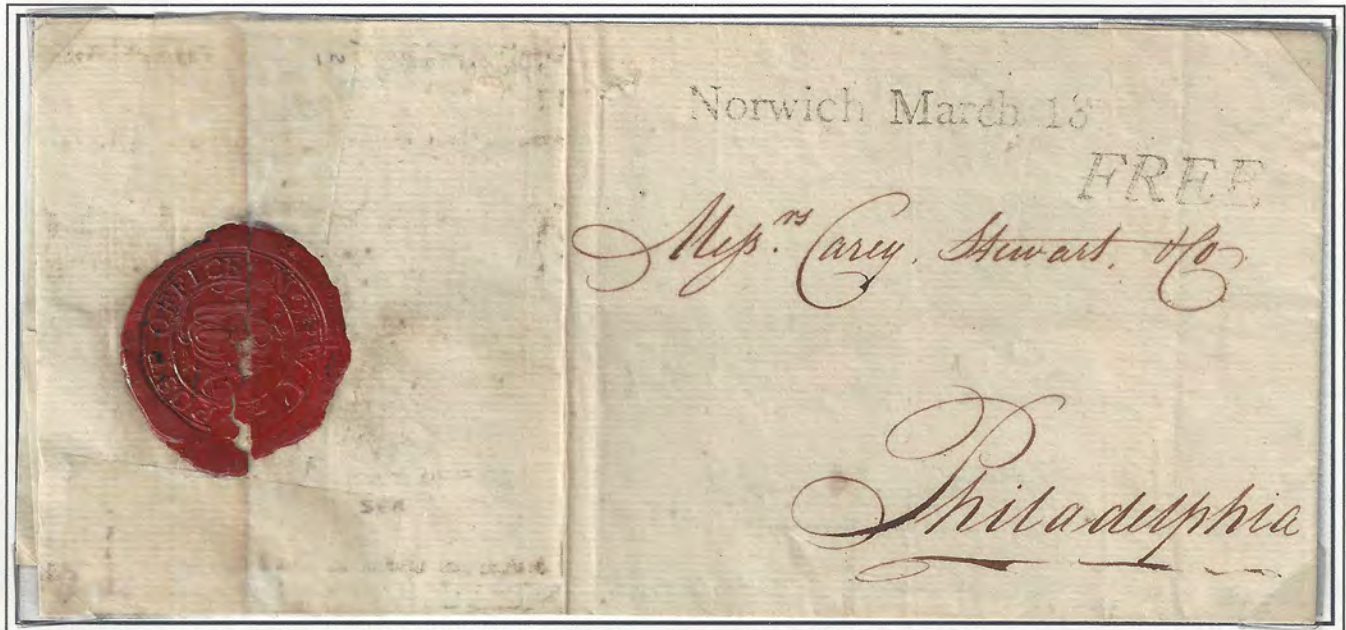 Norwich March 13
FREE
Mess.rs Carey, Stewart, & Co
Philadelphia
POST OFFICE NORWICH